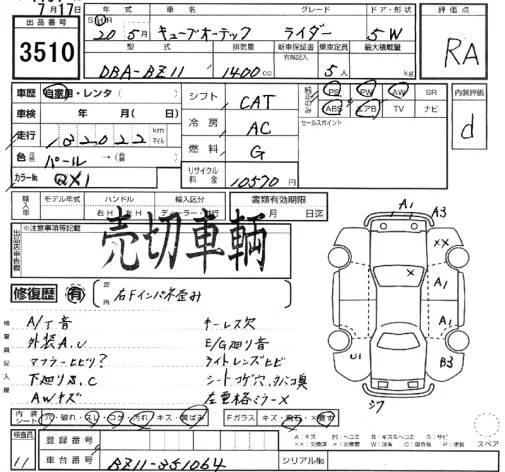 7月17日
出品番号 3510
年式 車名 グレード ドア・形状
20年 5月 キューブオーテック ライダー 5-W
型式 排気量 新車保証書 有無記入 乗車定員 最大積載量
DBA-BZ11 1400cc 5人 kg
評価点 RA
車歴 自家用・レンタ( )
車検 年 月( 日)
走行 132022 km マイル
色 元色 パール → (色替 )
カラーNo. QX1
シフト CAT
冷房 AC
燃料 G
リサイクル料金 10570円
純正のみ PS PW AW SR
ABS エアB TV ナビ
セールスポイント
内装評価 d
輸入車 モデル年式 ハンドル 輸入区分 書類有効期限
年 右H 左H ディーラー・並行 月 日迄
出品店申告欄 ※注意事項等記載
売切車輌
修復歴 有 箇所 右Fインパネ歪み
検査員記入欄
A/T音 キーレス欠
外装A.U E/G廻り音
マフラーヒビリ? ライトレンズヒビ
下廻りS.C シートコゲ穴、タバコ臭
AWキズ 左亜格ミラーX
A1 A3
XX A1
X
A1
U1 B3
内装 シート 穴・破れ・スレ・コゲ・汚れ・キズ・飛ばみ Fガラス キズ・飛石・X・傷寸
検査員 11
登録番号
車台番号 BZ11-351064 シリアルNo.
A:キズ U:ヘコミ B:キズ&ヘコミ S:サビ
スペア